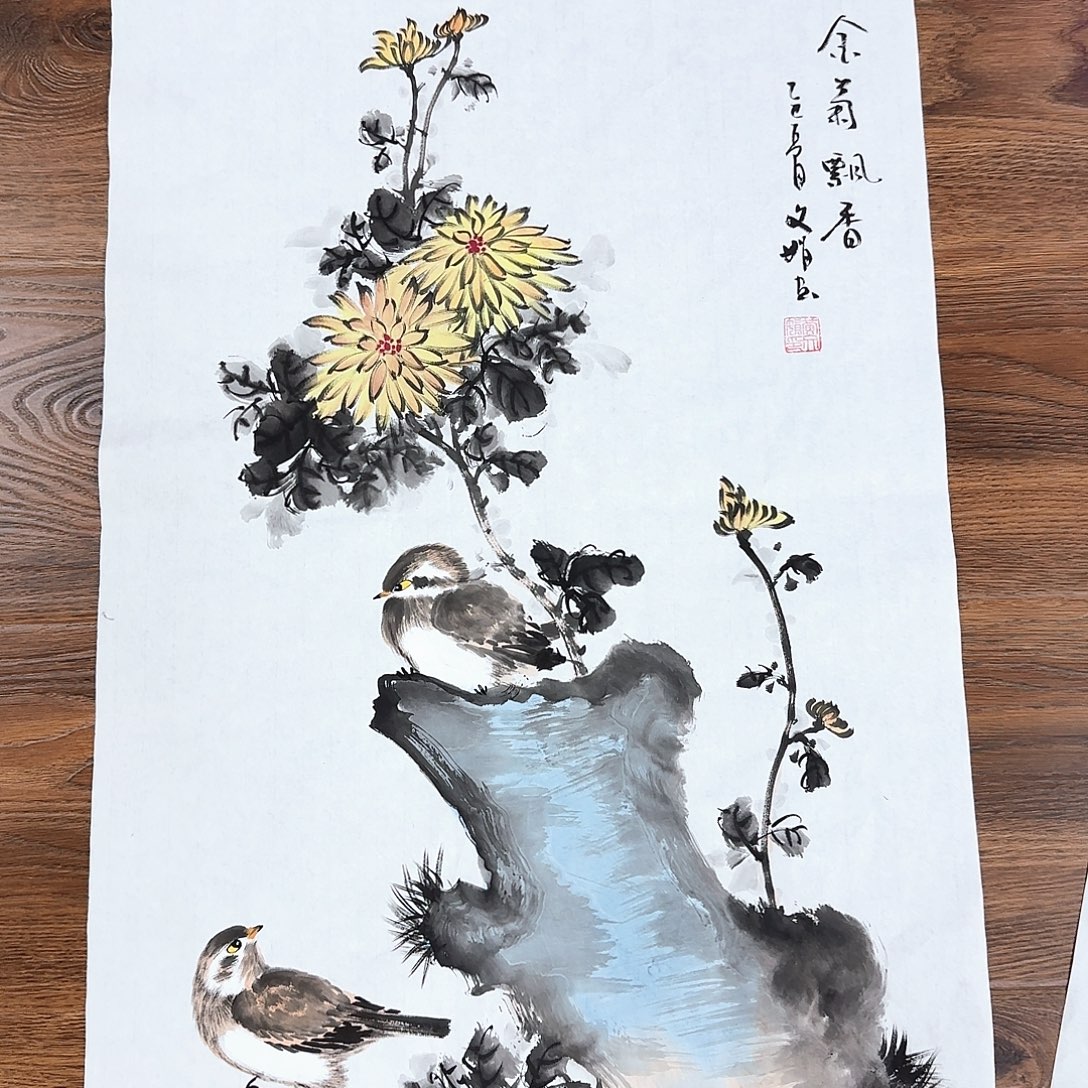 金菊飘香
乙巳夏月文娟画